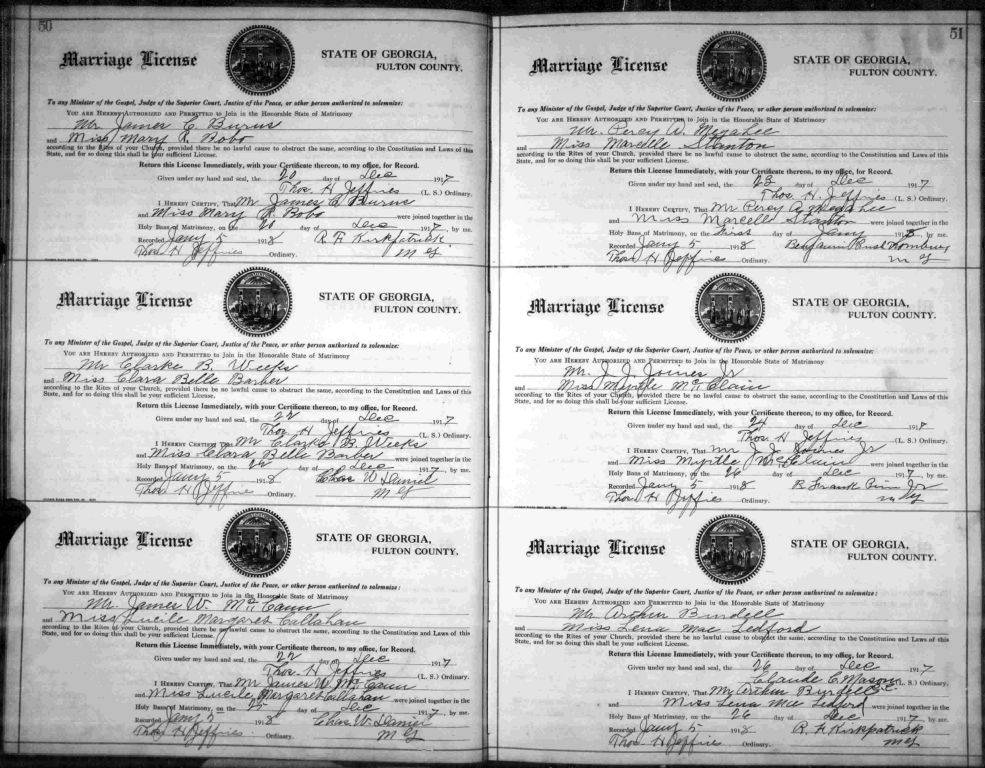 50
Marriage License
STATE OF GEORGIA,
FULTON COUNTY.
To any Minister of the Gospel, Judge of the Superior Court, Justice of the Peace, or other person authorized to solemnize:
YOU ARE HEREBY AUTHORIZED AND PERMITTED to Join in the Honorable State of Matrimony
Mr James C Burns
and Miss Mary R. Bobo
according to the Rites of your Church, provided there be no lawful cause to obstruct the same, according to the Constitution and Laws of this
State, and for so doing this shall be your sufficient License.
Return this License Immediately, with your Certificate thereon, to my office, for Record.
Given under my hand and seal, the 20 day of Dec 1917
Thos. H Jeffries (L. S.) Ordinary.
I HEREBY CERTIFY, That Mr James C Burns
and Miss Mary R Bobo were joined together in the
Holy Bans of Matrimony, on the 20 day of Dec 1917, by me.
Recorded Jany 5 1918 R. F. Kirkpatrick
Thos H Jeffries Ordinary. M G
Marriage License
STATE OF GEORGIA,
FULTON COUNTY.
To any Minister of the Gospel, Judge of the Superior Court, Justice of the Peace, or other person authorized to solemnize:
YOU ARE HEREBY AUTHORIZED AND PERMITTED to Join in the Honorable State of Matrimony
Mr Clarke B. Weeks
and Miss Clara Belle Barber
according to the Rites of your Church, provided there be no lawful cause to obstruct the same, according to the Constitution and Laws of this
State, and for so doing this shall be your sufficient License.
Return this License Immediately, with your Certificate thereon, to my office, for Record.
Given under my hand and seal, the 22 day of Dec 1917
Thos H Jeffries (L. S.) Ordinary.
I HEREBY CERTIFY, That Mr Clarke B. Weeks
and Miss Clara Belle Barber were joined together in the
Holy Bans of Matrimony, on the 22 day of Dec 1917, by me.
Recorded Jany 5 1918 Chas W Daniel
Thos H Jeffries Ordinary. M G
Marriage License
STATE OF GEORGIA,
FULTON COUNTY.
To any Minister of the Gospel, Judge of the Superior Court, Justice of the Peace, or other person authorized to solemnize:
YOU ARE HEREBY AUTHORIZED AND PERMITTED to Join in the Honorable State of Matrimony
Mr. James W. McCann
and Miss Lucile Margaret Callahan
according to the Rites of your Church, provided there be no lawful cause to obstruct the same, according to the Constitution and Laws of this
State, and for so doing this shall be your sufficient License.
Return this License Immediately, with your Certificate thereon, to my office, for Record.
Given under my hand and seal, the 22 day of Dec 1917
Thos. H Jeffries (L. S.) Ordinary.
I HEREBY CERTIFY, That Mr James W. McCann
and Miss Lucile Margaret Callahan were joined together in the
Holy Bans of Matrimony, on the 25 day of Dec 1917, by me.
Recorded Jany 5 1918 Chas. W. Daniel
Thos H Jeffries Ordinary. M G
51
Marriage License
STATE OF GEORGIA,
FULTON COUNTY.
To any Minister of the Gospel, Judge of the Superior Court, Justice of the Peace, or other person authorized to solemnize:
YOU ARE HEREBY AUTHORIZED AND PERMITTED to Join in the Honorable State of Matrimony
Mr. Percy A. Megahee
and Miss Marcelle Stanton
according to the Rites of your Church, provided there be no lawful cause to obstruct the same, according to the Constitution and Laws of this
State, and for so doing this shall be your sufficient License.
Return this License Immediately, with your Certificate thereon, to my office, for Record.
Given under my hand and seal, the 23 day of Dec 1917
Thos. H. Jeffries (L. S.) Ordinary.
I HEREBY CERTIFY, That Mr Percy A Megahee
and Miss Marcelle Stanton were joined together in the
Holy Bans of Matrimony, on the First day of Jany 1918, by me.
Recorded Jany 5 1918 Benjamin Rush
Thos H Jeffries Ordinary. M G
Marriage License
STATE OF GEORGIA,
FULTON COUNTY.
To any Minister of the Gospel, Judge of the Superior Court, Justice of the Peace, or other person authorized to solemnize:
YOU ARE HEREBY AUTHORIZED AND PERMITTED to Join in the Honorable State of Matrimony
Mr. J. J. Joines Jr
and Miss Myrtle McClain
according to the Rites of your Church, provided there be no lawful cause to obstruct the same, according to the Constitution and Laws of this
State, and for so doing this shall be your sufficient License.
Return this License Immediately, with your Certificate thereon, to my office, for Record.
Given under my hand and seal, the 24 day of Dec 191
Thos. H Jeffries (L. S.) Ordinary.
I HEREBY CERTIFY, That Mr J. J. Joines Jr
and Miss Myrtle McClain were joined together in the
Holy Bans of Matrimony, on the 26 day of Dec 1917, by me.
Recorded Jany 5 1918 B Frank Jr
Thos H Jeffries Ordinary. M G
Marriage License
STATE OF GEORGIA,
FULTON COUNTY.
To any Minister of the Gospel, Judge of the Superior Court, Justice of the Peace, or other person authorized to solemnize:
YOU ARE HEREBY AUTHORIZED AND PERMITTED to Join in the Honorable State of Matrimony
Mr Arthur
and Miss Lena Mae Ledford
according to the Rites of your Church, provided there be no lawful cause to obstruct the same, according to the Constitution and Laws of this
State, and for so doing this shall be your sufficient License.
Return this License Immediately, with your Certificate thereon, to my office, for Record.
Given under my hand and seal, the 26 day of Dec 1917
Claude C Mason (L. S.) Ordinary.
I HEREBY CERTIFY, That Mr Arthur
and Miss Lena Mae Ledford were joined together in the
Holy Bans of Matrimony, on the 26 day of Dec 1917, by me.
Recorded Jany 5 1918 R. F Kirkpatrick
Thos H Jeffries Ordinary. M G